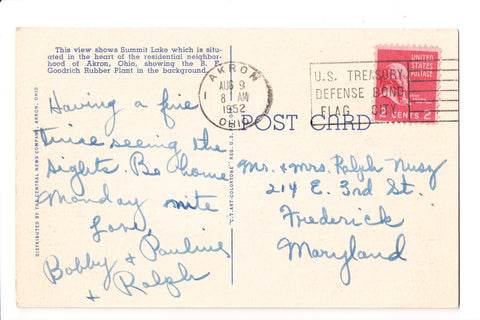 This view shows Summit Lake which is situ-
ated in the heart of the residential neighbor-
hood of Akron, Ohio, showing the B. F.
Goodrich Rubber Plant in the background.
AKRON
AUG 9
8 AM
1952
OHIO
U.S. TREASURY
DEFENSE BOND
FLAG CITY
UNITED
STATES
POSTAGE
2 CENTS 2
POST CARD
Having a fine
time seeing the
sights. Be home
Monday nite
Love,
Bobby + Pauline
+ Ralph
Mr. + Mrs. Ralph Nusz
214 E. 3rd St.
Frederick
Maryland
DISTRIBUTED BY THE CENTRAL NEWS COMPANY, AKRON, OHIO
"C.T. ART-COLORTONE" REG. U.S. PAT. OFF.